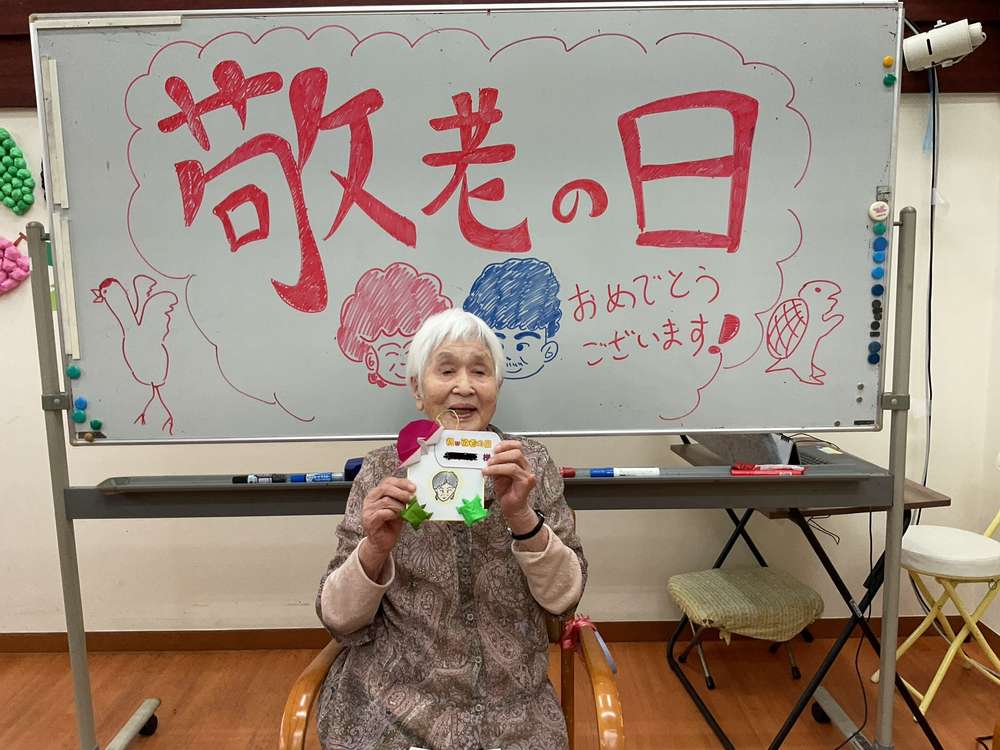 敬老の日
おめでとう
ございます!
祝 敬老の日
様